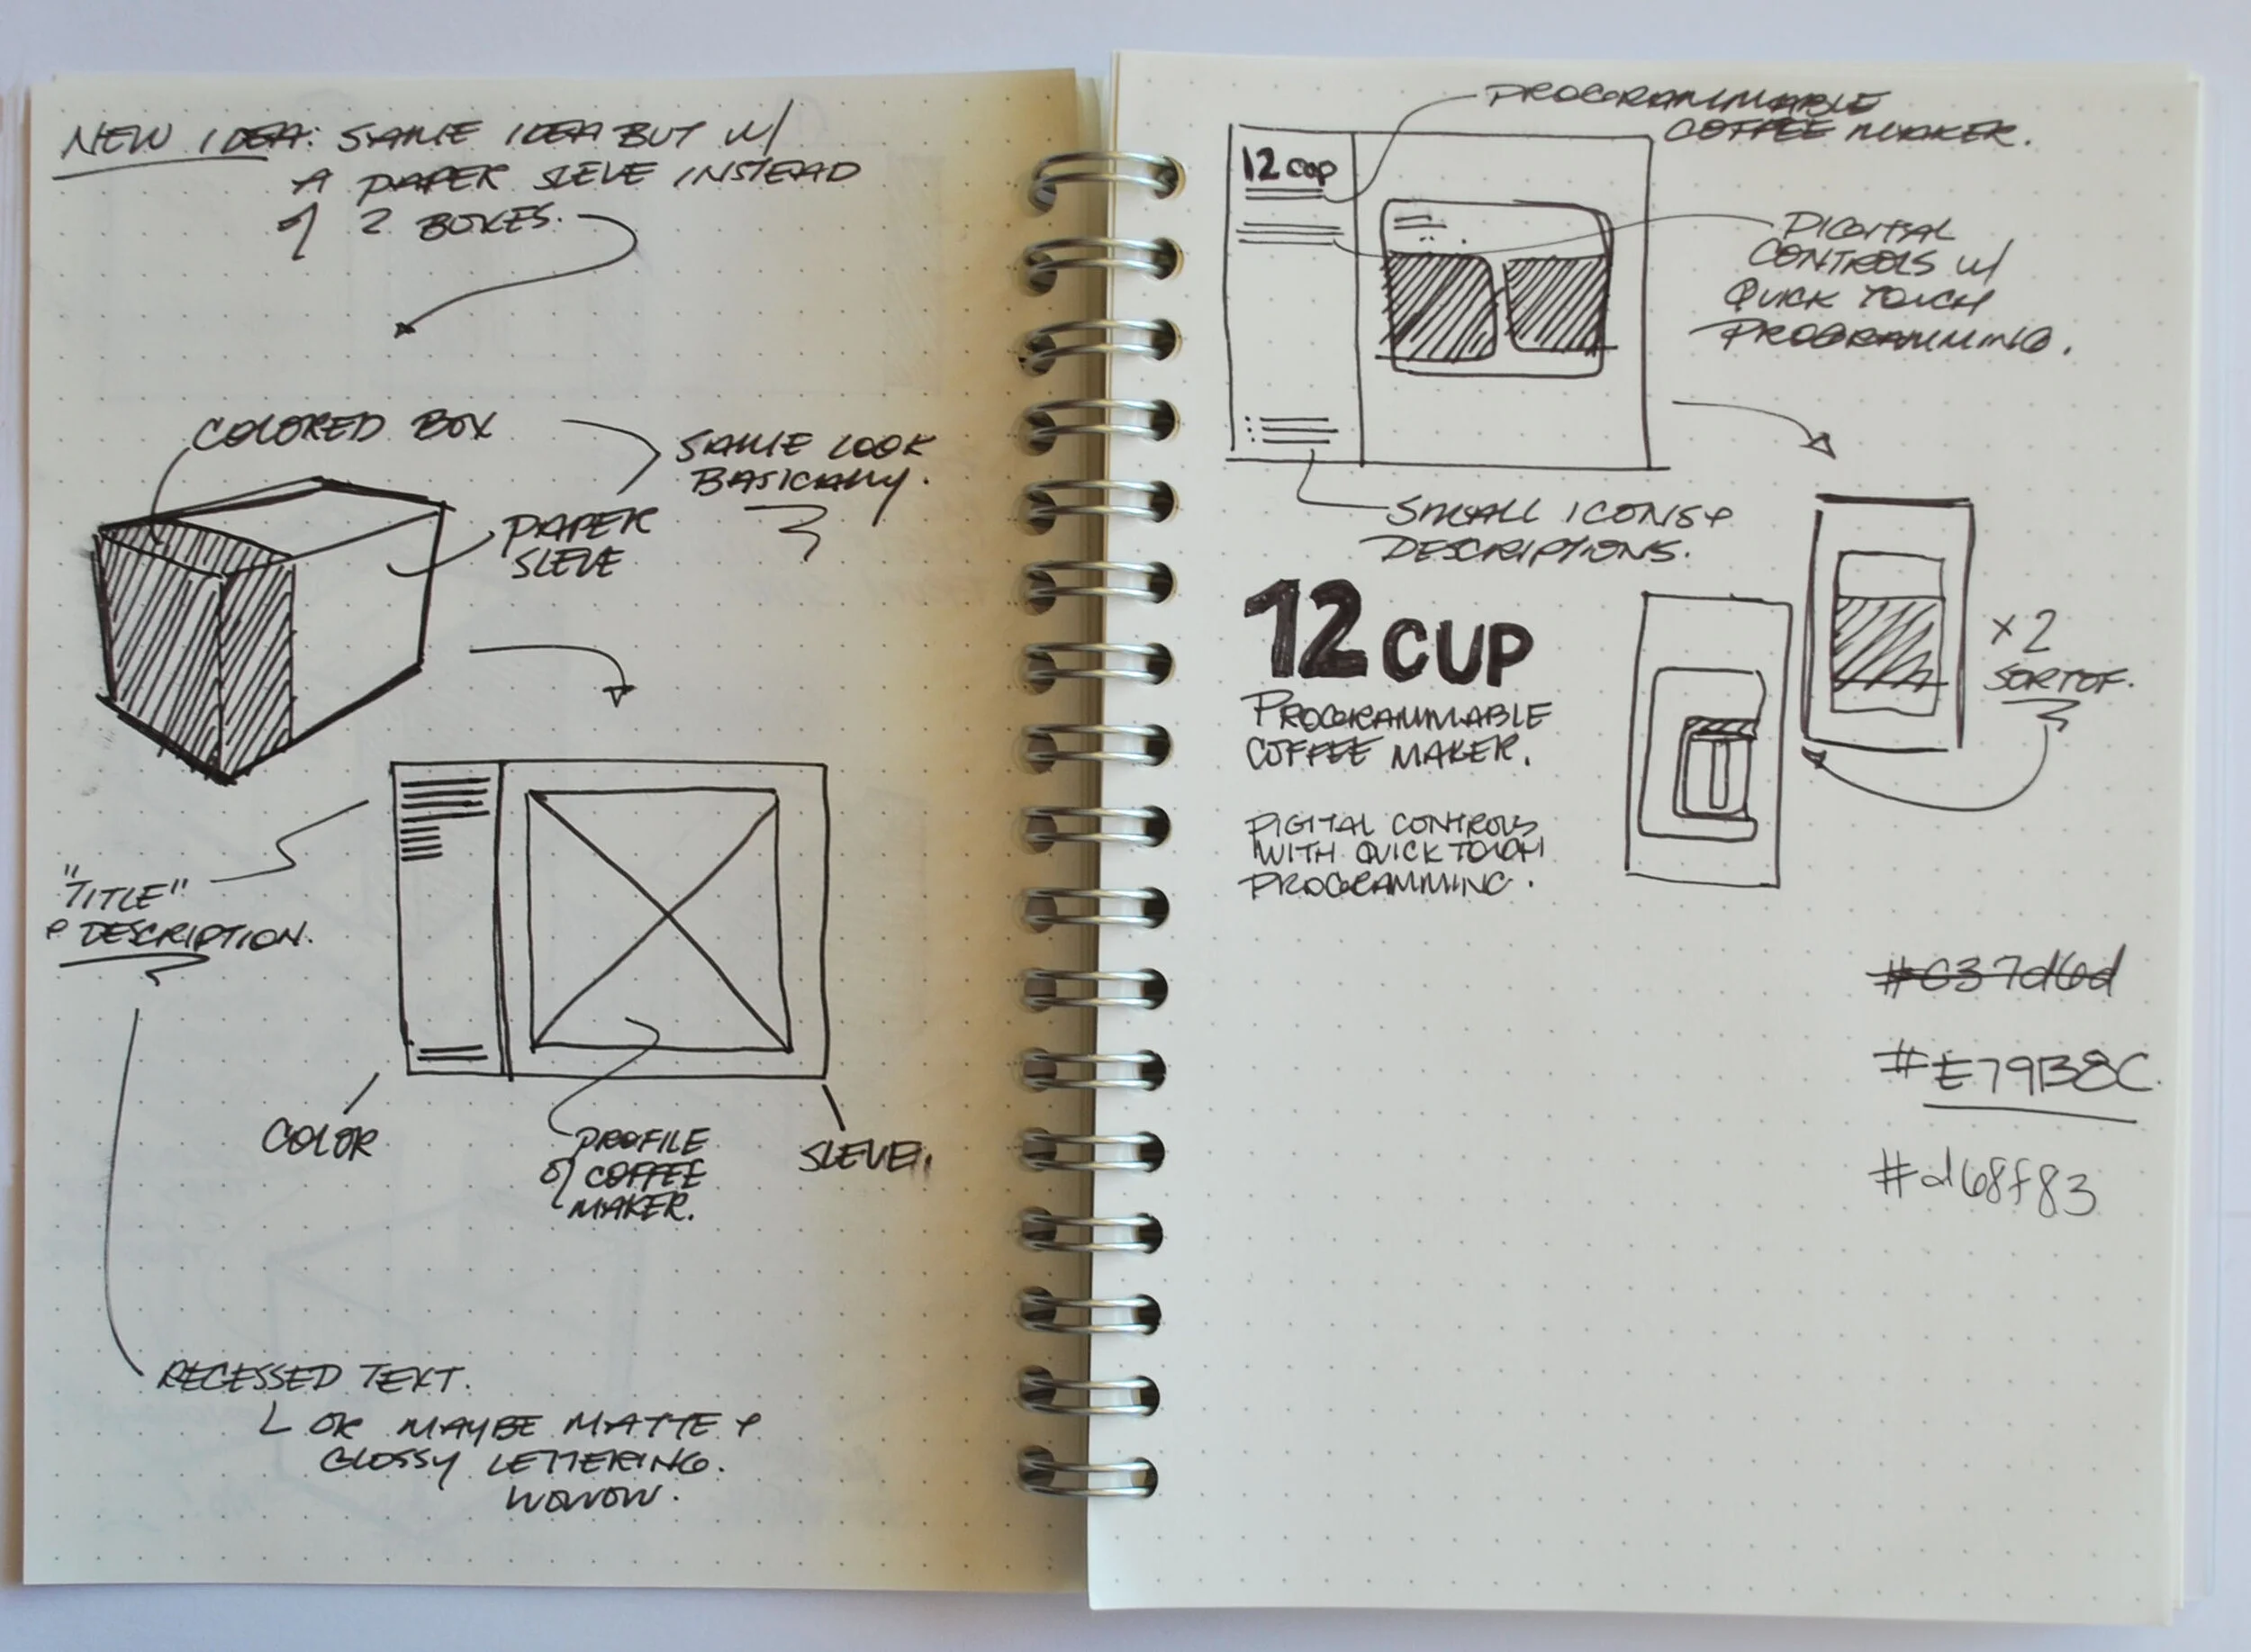 NEW IDEA: SAME IDEA BUT W/
A PAPER SLEVE INSTEAD
of 2 BOXES.
COLORED BOX
SAME LOOK
BASICALLY.
PAPER
SLEVE
"TITLE"
& DESCRIPTION.
COLOR
PROFILE
of COFFEE
MAKER.
SLEVE.
RECESSED TEXT.
L OR MAYBE MATTE &
GLOSSY LETTERING.
WOWOW.
PROGRAMMABLE
COFFEE MAKER.
12 cup
DIGITAL
CONTROLS W/
QUICK TOUCH
PROGRAMMING.
SMALL ICONS &
DESCRIPTIONS.
12 CUP
PROGRAMMABLE
COFFEE MAKER.
DIGITAL CONTROLS
WITH QUICK TOUCH
PROGRAMMING.
x2
SORTOF.
#E79B8C
#d68f83